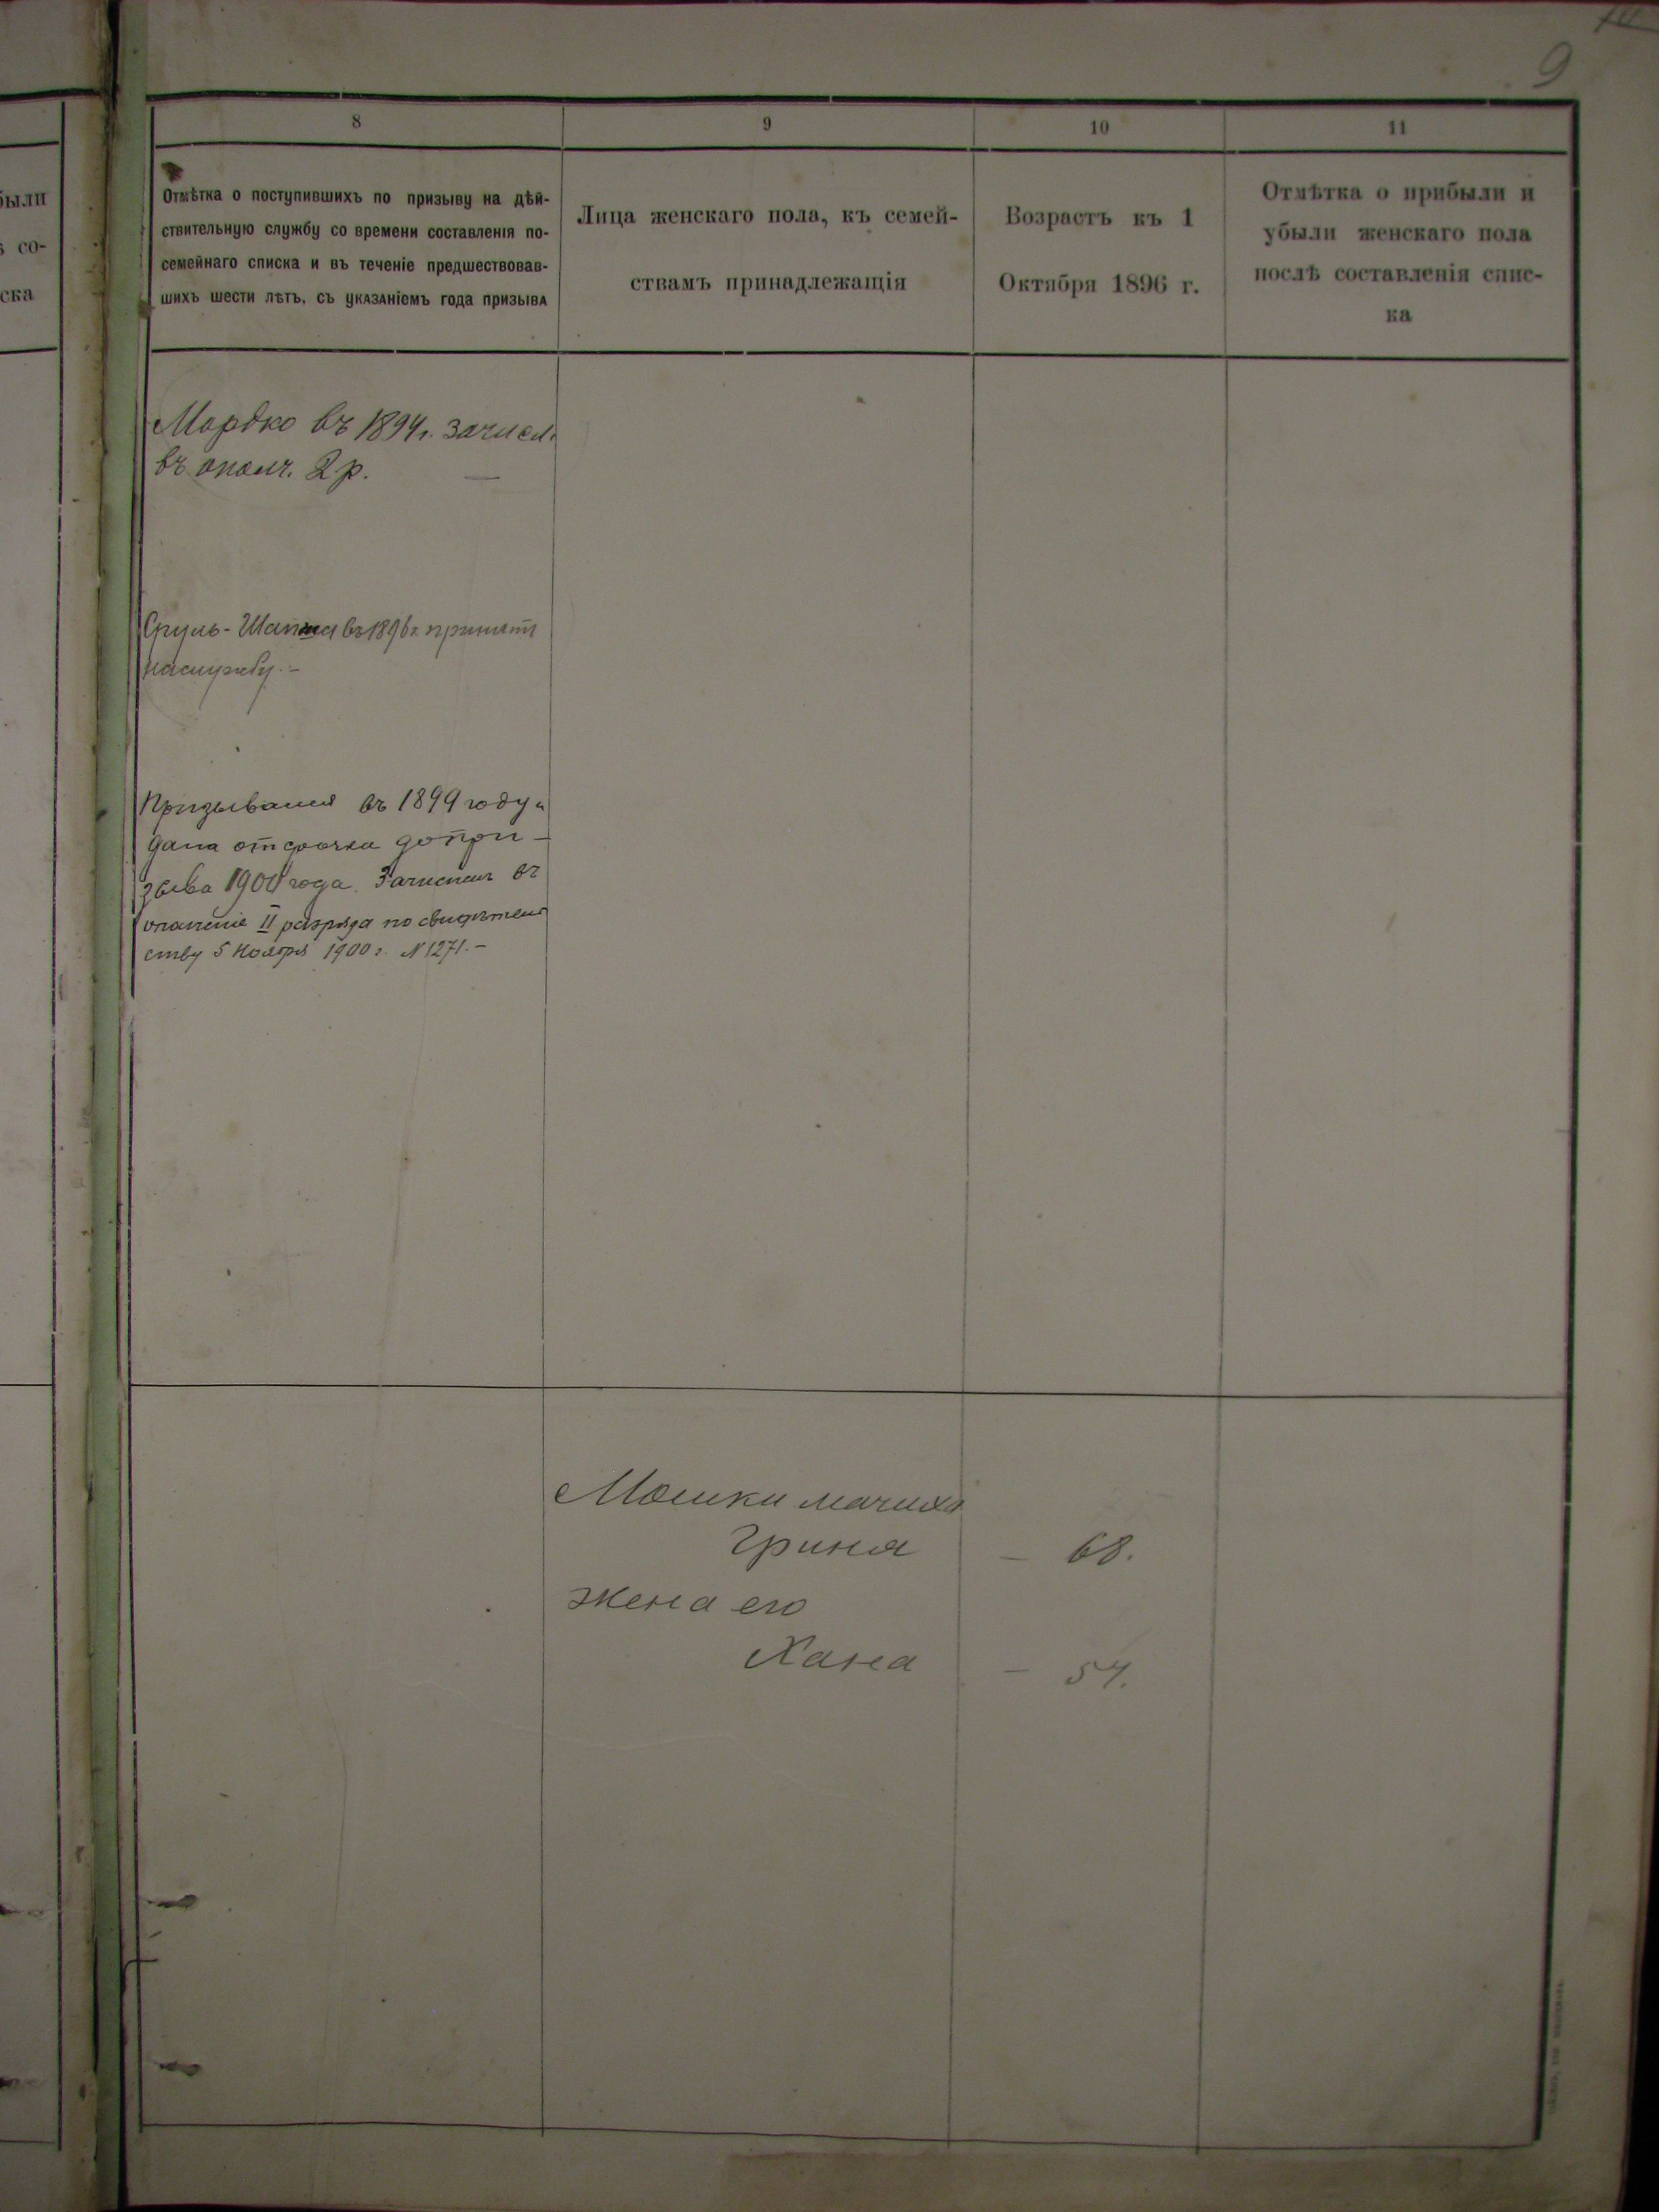 9
были
со-
ска
8
9
10
11
Отмѣтка о поступившихъ по призыву на дѣй-
ствительную службу со времени составленія по-
семейнаго списка и въ теченіе предшествовав-
шихъ шести лѣтъ, съ указаніемъ года призыва
Лица женскаго пола, къ семей-
ствамъ принадлежащія
Возрастъ къ 1
Октября 1896 г.
Отмѣтка о прибыли и
убыли женскаго пола
послѣ составленія спис-
ка
Мордко въ 1894 г. зачисл.
въ ополч. 2 р.
Сруль-Шапша въ 1896 г. принятъ
на службу.-
Призывался въ 1899 году и
дана отсрочка до при-
зыва 1900 года. Зачисленъ въ
ополченіе II разряда по свидѣтель
ству 5 Ноября 1900 г. N 1271.-
Мошки мачиха
Грина - 68.
жена его
Хана - 54.